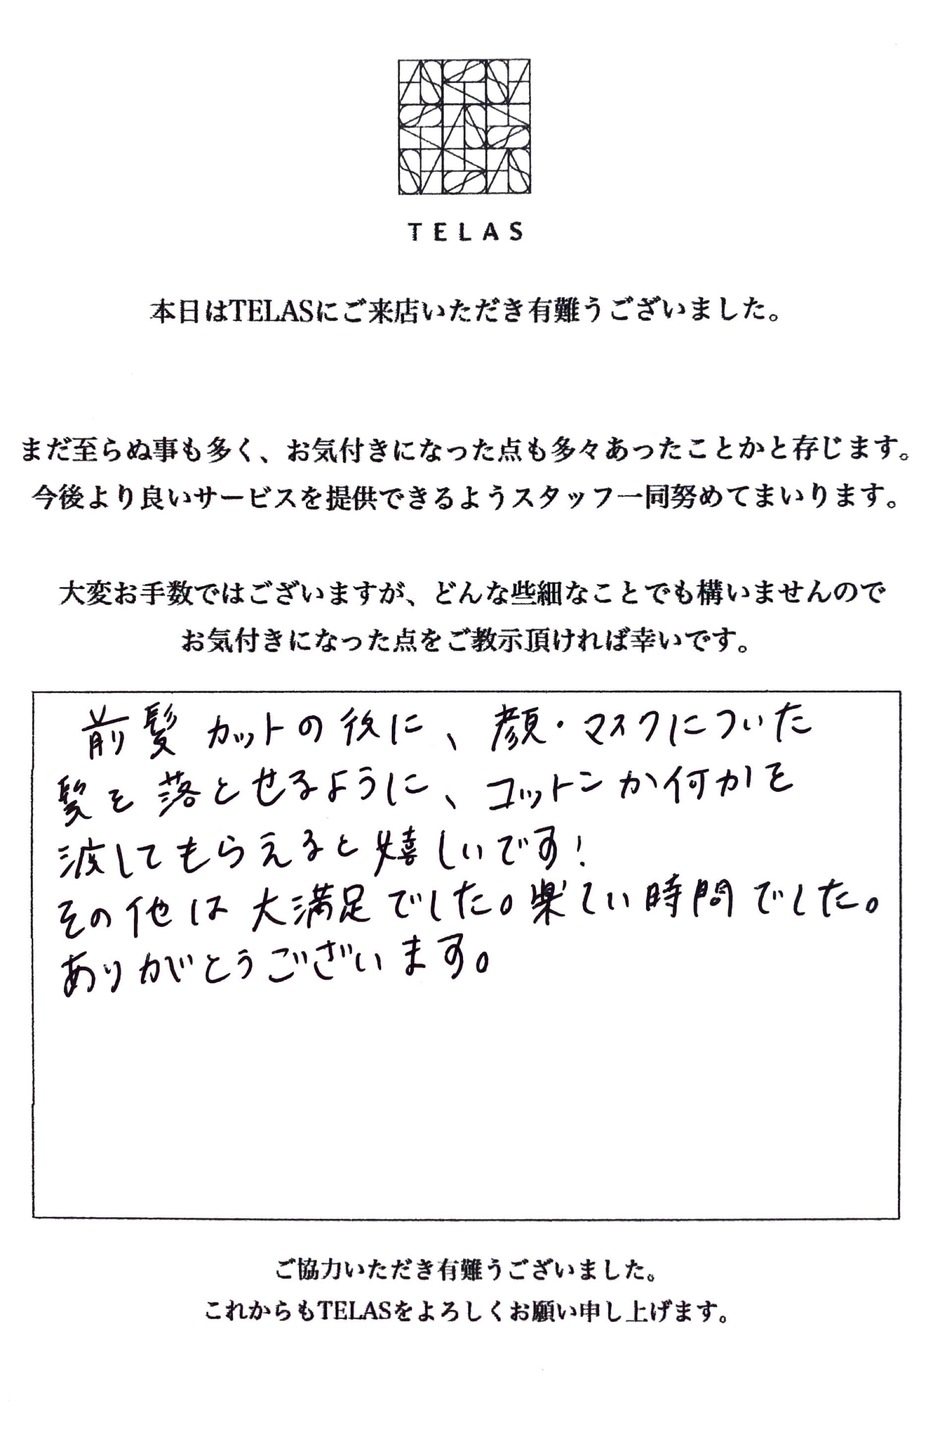 TELAS
本日はTELASにご来店いただき有難うございました。
まだ至らぬ事も多く、お気付きになった点も多々あったことかと存じます。
今後より良いサービスを提供できるようスタッフ一同努めてまいります。
大変お手数ではございますが、どんな些細なことでも構いませんので
お気付きになった点をご教示頂ければ幸いです。
前髪カットの後に、顔・マスクについた
髪を落とせるように、コットンか何かを
渡してもらえると嬉しいです!
その他は大満足でした。楽しい時間でした。
ありがとうございます。
ご協力いただき有難うございました。
これからもTELASをよろしくお願い申し上げます。